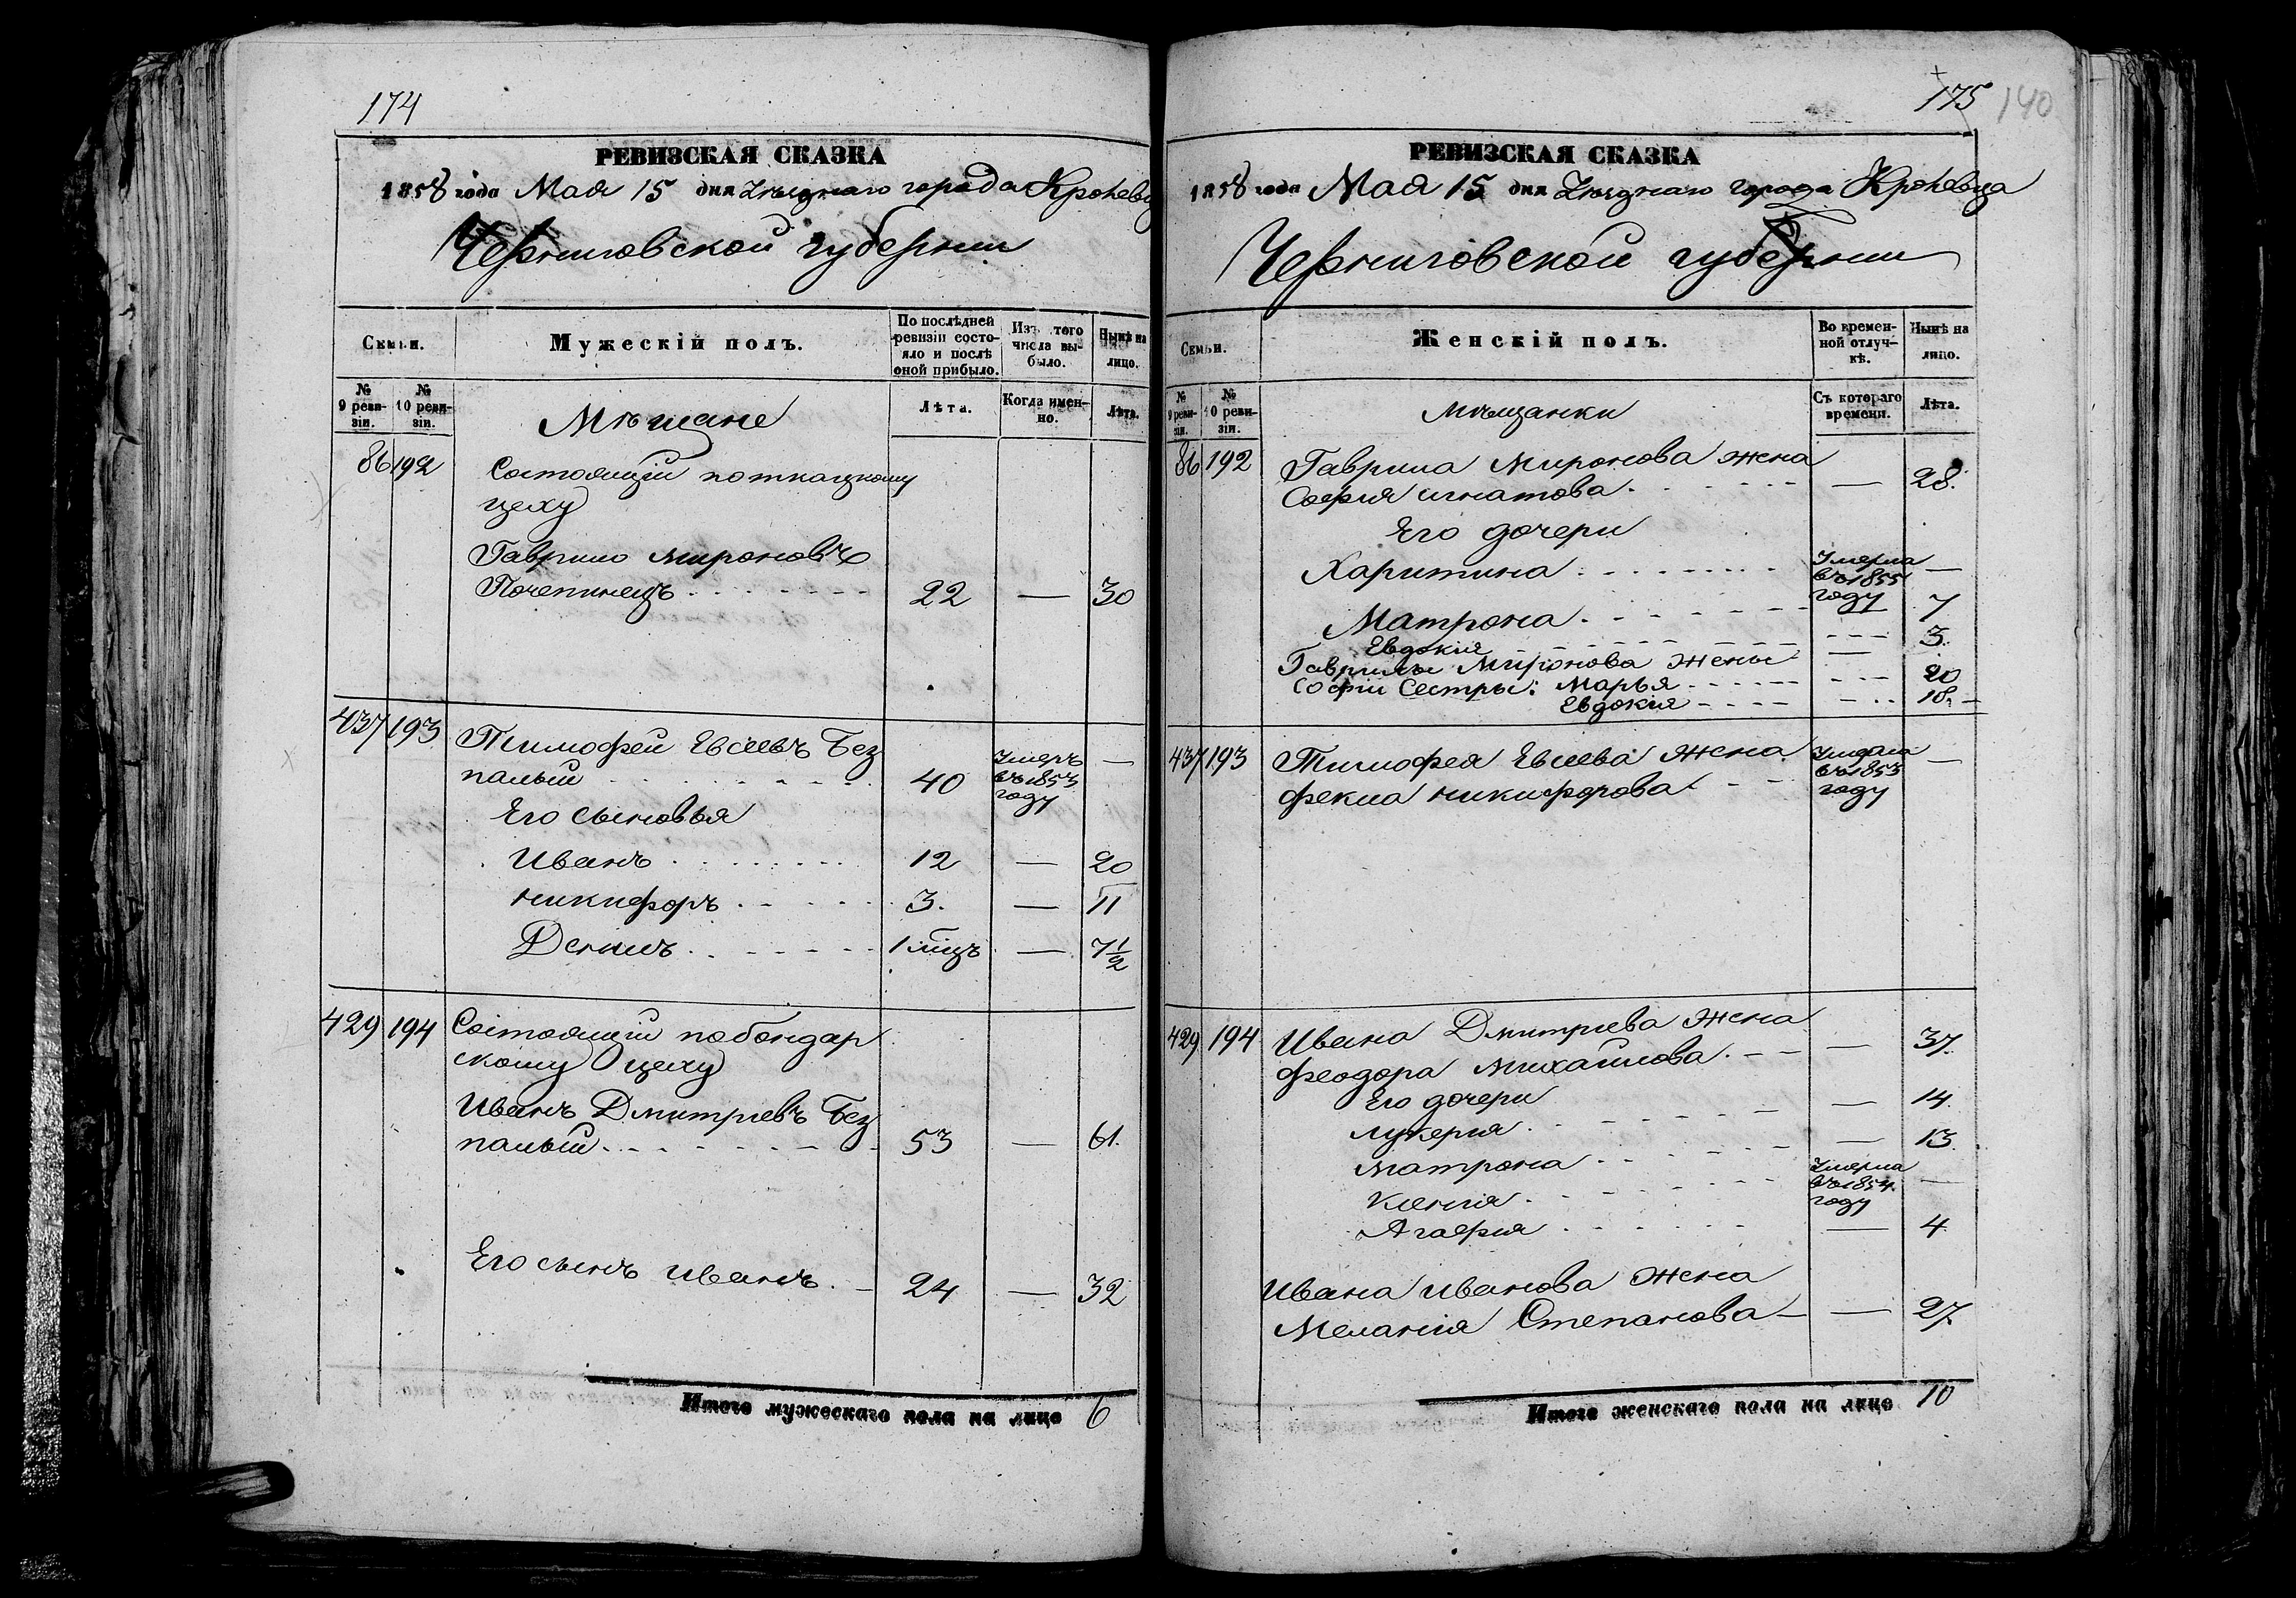 174
РЕВИЗСКАЯ СКАЗКА
1858 года Мая 15 дня Уѣзднаго города Кролевц
Черниговской губернии
Семьи.
Мужескій полъ.
По послѣдней ревизіи состояло и послѣ оной прибыло.
Изъ того числа выбыло.
Нынѣ на лицо.
№ 9 ревизіи.
№ 10 ревизіи.
Мѣщане
Лѣта.
Когда именно.
Лѣта.
86 192 Состоящій по ткацкому
цеху
Гаврило Мироновъ
Почепинецъ 22 — 30
437 193 Тимофей Евсеевъ Без
палый 40 Умеръ въ 1853 году —
Его сыновья
Иванъ 12 — 20
Никифоръ 3. — 11
Денисъ 1 мцъ — 7 1/2
429 194 Состоящій по бондар
скому цеху
Иванъ Дмитріевъ Без
палый 53 — 61.
Его сынъ Иванъ 24 — 32
Итого мужескаго пола на лицо 6
175 140
РЕВИЗСКАЯ СКАЗКА
1858 года Мая 15 дня Уѣзднаго города Кролевца
Черниговской губернии
Семьи.
Женскій полъ.
Во временной отлучкѣ.
Нынѣ на лицо.
№ 9 ревизіи.
№ 10 ревизіи.
Мѣщанки
Съ котораго времени.
Лѣта.
86 192 Гаврила Миронова жена
София Игнатова — 28.
Его дочери
Харитина Умерла въ 1855 году —
Матрона 7
Евдокія 3.
Гаврилы Миронова жены
Софіи Сестры: Марья 20
Евдокія 18.
437 193 Тимофея Евсеева жена
Фекла Никифорова въ 1853 году —
429 194 Ивана Дмитріева жена
Феодора Михайлова — 37.
Его дочери
Лукерия — 14.
Матрона — 13.
Ксенія Умерла въ 1854 году —
Агафия — 4.
Ивана Иванова жена
Мелания Степанова — 27.
Итого женскаго пола на лицо 10